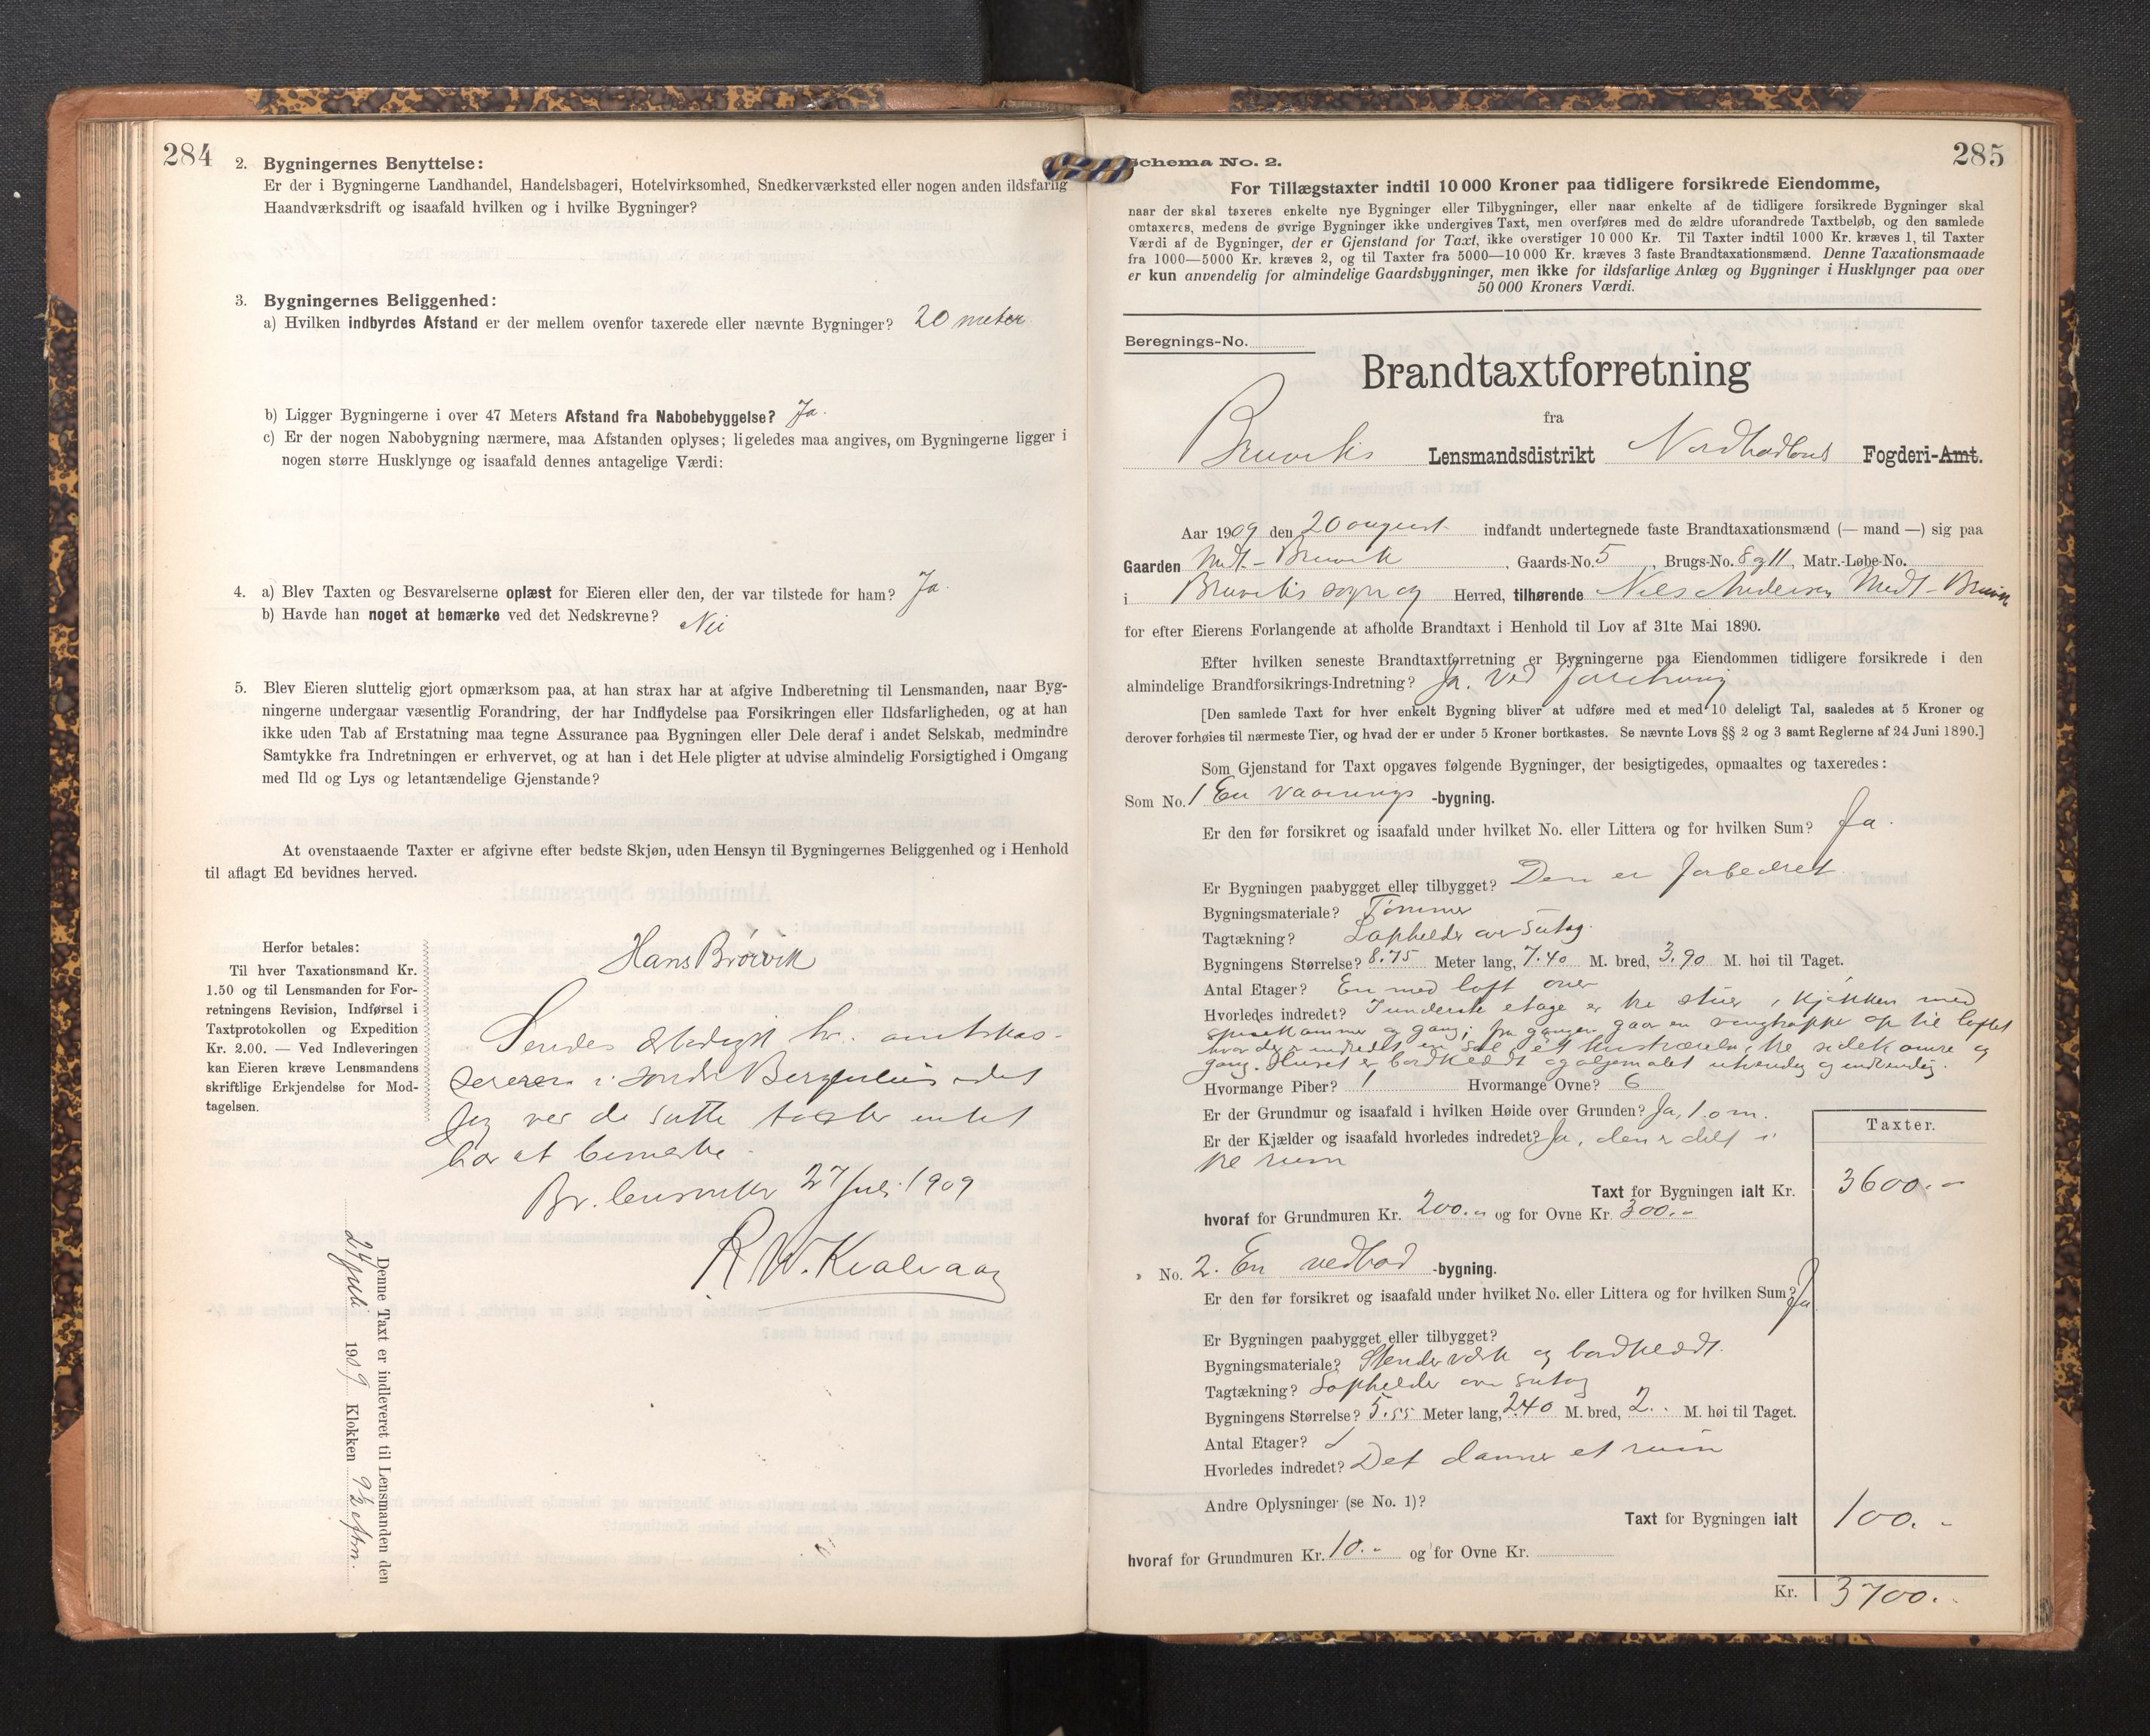 284
2. Bygningernes Benyttelse:
Er der i Bygningerne Landhandel, Handelsbageri, Hotelvirksomhed, Snedkerværksted eller nogen anden ildsfarlig
Haandværksdrift og isaafald hvilken og i hvilke Bygninger?
3. Bygningernes Beliggenhed:
a) Hvilken indbyrdes Afstand er der mellem ovenfor taxerede eller nævnte Bygninger? 20 meter
b) Ligger Bygningerne i over 47 Meters Afstand fra Nabobebyggelse? Ja.
c) Er der nogen Nabobygning nærmere, maa Afstanden oplyses; ligeledes maa angives, om Bygningerne ligger i
nogen større Husklynge og isaafald dennes antagelige Værdi:
4. a) Blev Taxten og Besvarelserne oplæst for Eieren eller den, der var tilstede for ham? Ja.
b) Havde han noget at bemærke ved det Nedskrevne? Nei
5. Blev Eieren sluttelig gjort opmærksom paa, at han strax har at afgive Indberetning til Lensmanden, naar Byg-
ningerne undergaar væsentlig Forandring, der har Indflydelse paa Forsikringen eller Ildsfarligheden, og at han
ikke uden Tab af Erstatning maa tegne Assurance paa Bygningen eller Dele deraf i andet Selskab, medmindre
Samtykke fra Indretningen er erhvervet, og at han i det Hele pligter at udvise almindelig Forsigtighed i Omgang
med Ild og Lys og letantændelige Gjenstande?
At ovenstaaende Taxter er afgivne efter bedste Skjøn, uden Hensyn til Bygningernes Beliggenhed og i Henhold
til aflagt Ed bevidnes herved.
Hans Brørvik
Herfor betales:
Til hver Taxationsmand Kr.
1.50 og til Lensmanden for For-
retningens Revision, Indførsel i
Taxtprotokollen og Expedition
Kr. 2.00. — Ved Indleveringen
kan Eieren kræve Lensmandens
skriftlige Erkjendelse for Mod-
tagelsen.
Sendes ærbødigst hr. amtskas-
sereren i søndre Bergenhus idet
jeg ved de satte taxter intet
har at bemerke.
Br. lensmkt 27 Juli 1909
R W. Kvalvaag
Denne Taxt er indleveret til Lensmanden den
24 juli 1909 Klokken 9½ efm.
285
Schema No. 2.
For Tillægstaxter indtil 10 000 Kroner paa tidligere forsikrede Eiendomme,
naar der skal taxeres enkelte nye Bygninger eller Tilbygninger, eller naar enkelte af de tidligere forsikrede Bygninger skal
omtaxeres, medens de øvrige Bygninger ikke undergives Taxt, men overføres med de ældre uforandrede Taxtbeløb, og den samlede
Værdi af de Bygninger, der er Gjenstand for Taxt, ikke overstiger 10 000 Kr. Til Taxter indtil 1000 Kr. kræves 1, til Taxter
fra 1000—5000 Kr. kræves 2, og til Taxter fra 5000—10 000 Kr. kræves 3 faste Brandtaxationsmænd. Denne Taxationsmaade
er kun anvendelig for almindelige Gaardsbygninger, men ikke for ildsfarlige Anlæg og Bygninger i Husklynger paa over
50 000 Kroners Værdi.
Beregnings-No.
Brandtaxtforretning
fra
Bruviks Lensmandsdistrikt Nordhordlens Fogderi-Amt.
Aar 1909 den 20 august indfandt undertegnede faste Brandtaxationsmænd (— mand —) sig paa
Gaarden Mdt.-Bruvik, Gaards-No. 5, Brugs-No. 8 og 11, Matr.-Løbe-No.
i Bruviks sogn og Herred, tilhørende Nils Andersen Medt-Bruvik
for efter Eierens Forlangende at afholde Brandtaxt i Henhold til Lov af 31te Mai 1890.
Efter hvilken seneste Brandtaxtforretning er Bygningerne paa Eiendommen tidligere forsikrede i den
almindelige Brandforsikrings-Indretning? Ja. Ved
[Den samlede Taxt for hver enkelt Bygning bliver at udføre med et med 10 deleligt Tal, saaledes at 5 Kroner og
derover forhøies til nærmeste Tier, og hvad der er under 5 Kroner bortkastes. Se nævnte Lovs §§ 2 og 3 samt Reglerne af 24 Juni 1890.]
Som Gjenstand for Taxt opgaves følgende Bygninger, der besigtigedes, opmaaltes og taxeredes:
Som No. 1 En vaanings-bygning.
Er den før forsikret og isaafald under hvilket No. eller Littera og for hvilken Sum? Ja.
Er Bygningen paabygget eller tilbygget? Den er forbedret
Bygningsmateriale? Tømmer
Tagtækning? Laphelder over sutag.
Bygningens Størrelse? 8.75 Meter lang, 7.40 M. bred, 3.90 M. høi til Taget.
Antal Etager? En med loft over
Hvorledes indredet? I underste etage er tre stuer, kjøkken med
spisekammer og gang; fra gangen gaar en vængtrappe op til loftet
hvor der er indredet en sal, et kvistværelse, tre sidekamre og
gang. Huset er bordklædt og oljemalet utvendig og indvendig.
Hvormange Piber? 1 Hvormange Ovne? 6
Er der Grundmur og isaafald i hvilken Høide over Grunden? Ja, 1.0 m.
Er der Kjælder og isaafald hvorledes indredet? Ja, den er delt i
tre rum
Taxter.
Taxt for Bygningen ialt Kr. 3600.-
hvoraf for Grundmuren Kr. 200.- og for Ovne Kr. 300.-
» No. 2. En vedbod-bygning.
Er den før forsikret og isaafald under hvilket No. eller Littera og for hvilken Sum? Ja
Er Bygningen paabygget eller tilbygget?
Bygningsmateriale? Stenderværk og bordklædt.
Tagtækning? Laphelder over sutag
Bygningens Størrelse? 5.55 Meter lang, 2.40 M. bred, 2. M. høi til Taget.
Antal Etager? 1
Hvorledes indredet? Det danner et rum
Andre Oplysninger (se No. 1)?
Taxt for Bygningen ialt 100.-
hvoraf for Grundmuren Kr. 10.- og for Ovne Kr.
Kr. 3700.-